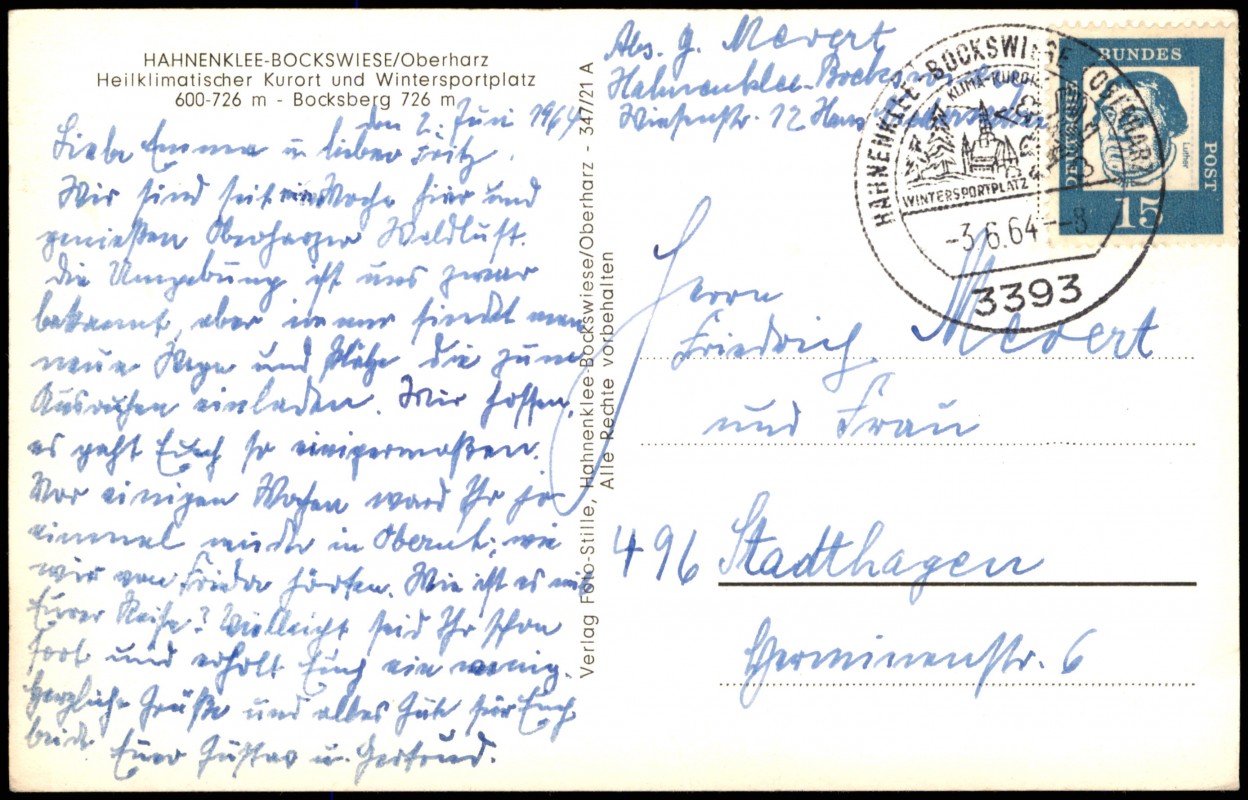 HAHNENKLEE-BOCKSWIESE/Oberharz
Heilklimatischer Kurort und Wintersportplatz
600-726 m - Bocksberg 726 m
den 2. Juni 1964
Liebe Emma u. lieber Fritz.
Wir sind seit Woche hier und
genießen Oberharzer Waldluft.
Die Umgebung ist uns zwar
bekannt, aber immer findet man
neue Wege und Plätze die zum
Ausruhen einladen. Wir hoffen,
es geht Euch so einigermaßen.
Vor einigen Wochen ward Ihr ja
einmal wieder in wie
wir von Frieda hörten. Wie ist es mit
Eurer Reise? Vielleicht seid Ihr schon
fort und erholt Euch ein wenig.
Herzliche Grüße und alles Gute für Euch
beide Euer Gustav u. Gertrud.
Verlag Foto-Stille, Hahnenklee-Bockswiese/Oberharz - 347/21 A
Alle Rechte vorbehalten
Abs. G. Mevert
Hahnenklee-Bockswiese
Wiesenstr. 12 Haus
HAHNENKLEE-BOCKSWIESE (OBERHARZ)
KLIMA-KURORT
WINTERSPORTPLATZ
-3.6.64--8
3393
DEUTSCHE
BUNDES
POST
Luther
15
Herrn
Friedrich Mevert
und Frau
496 Stadthagen
Herminenstr. 6